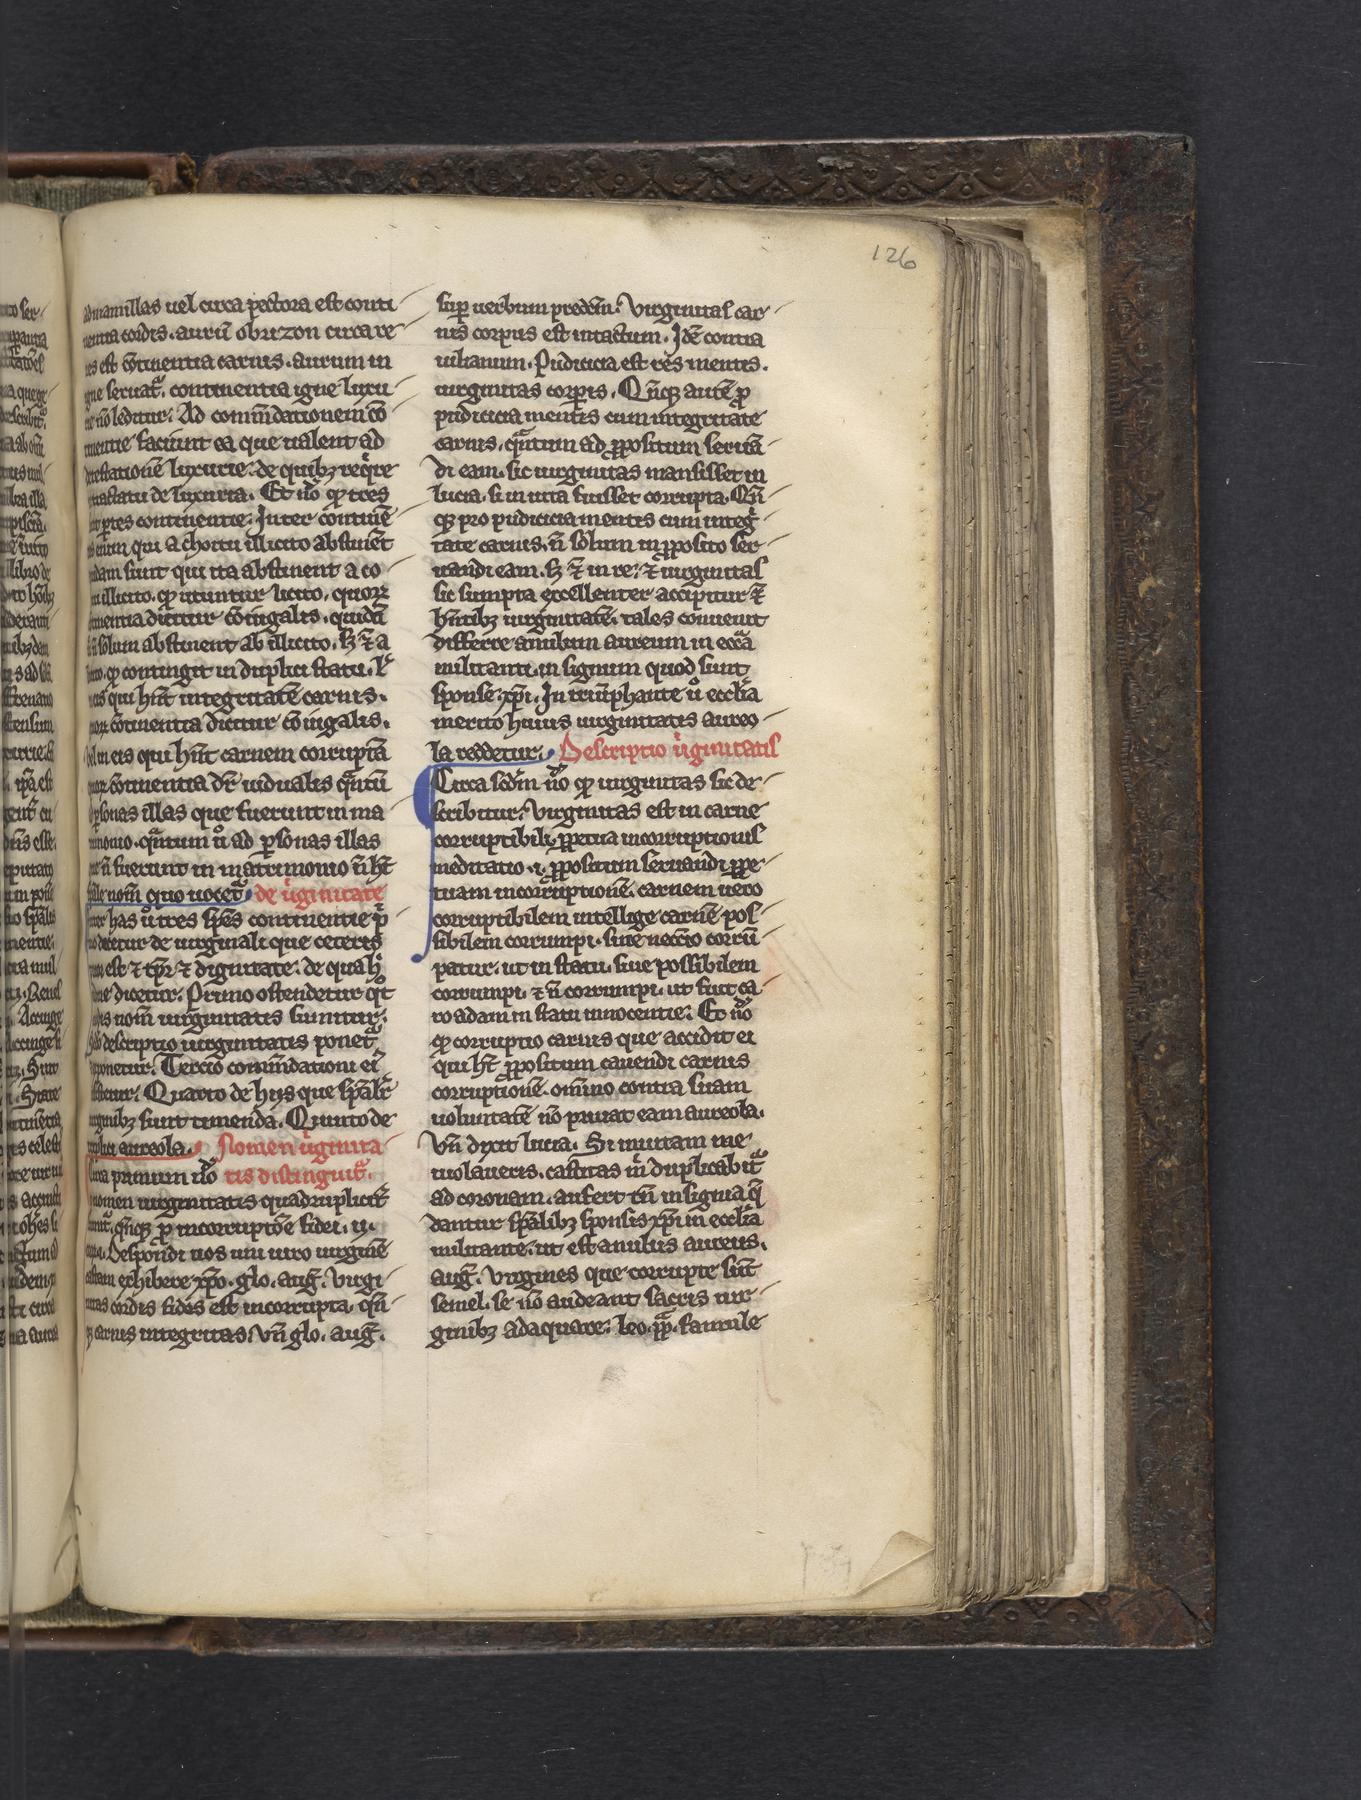 126
ad mamillas uel circa pectora est conti
nentia cordis. aurū obrizon circa re
nes est ↄtinentia carnis. aurum in
igne seruat᷑. continentia igne luxu
rie nō leditur. Ad comm̄dationem cō
tinentie faciunt ea que ualent ad
detestationē luxurie. de quibꝫ req̇re
in tractatu de luxuria. Et nō ꝙ tres
sunt ꝑtes continentie. Inter continē
tes enim qui a choitu illicito abstinēt
quidam sunt qui ita abstinent a co
itu illicito. ꝙ utuntur licito. quoꝝ
continentia dicitur cōiugalis. quidā
ū nō solum abstinent ab illicito. sꝫ ⁊ a
licito. ꝙ contingit in duplici statu. l᷑
in eis qui hn̄t integritatē carnis.
quoꝝ ↄtinentia dicitur cōiugalis.
Vel in eis qui hn̄t carnem corruptā
quoꝝ ↄtinentia dr̄ uidualis q̇ntū
ad ꝑsonas illas que fuerunt in ma
trimonio. q̇ntum ū ad ꝑsonas illas
que n̄ fuerunt in matrimonio n̄ hт̄
tale nom̄ quo uocet᷑. de ůginitate
Inter has ů tres sp̄es continentie p̊
mo dicetur de uirginali que ceteris
prior est ⁊ tp̄r ⁊ dignitate. de qua h̊
ordine dicetur. Primo ostendetur q̊t
modis nom̄ uirginitatis sumitur.
Scd̊o descriptio uirginitatis ponet᷑
exponetur. Tercio comm̄dationi ei᷑
insistetur. Quarto de hijs que sp̄alr̄
uirginibꝫ sunt timenda. Quinto de
triplici aureola. Nomen ůginita
Circa primum nō tis distinguit᷑.
nomen uirginitatis quadrupliciт̄
sumit᷑. qn̄qꝫ ꝓ incorruptōe fidei. ij.
cor. Despondi uos uni uiro uirginē
castam exhibere xp̄o. glo. aug᷑. Virgi
nitas cordis fides est incorrupta. qn̄
qꝫ carnis integritas. Vn̄ glo. aug᷑.
suꝑ uerbum predcm̄. Virginitas car
nis corpus est intactum. Idē contra
iulianum. Pudicicia est res mentis.
uirginitas corꝑis. Qn̄qꝫ autē ꝓ
pudicicia mentis cum integritate
carnis. q̇ntum ad ꝓpositum seruā
di eam. sic uirginitas mansisset in
lucia. si inuita fuisset corrupta. Qn̄
qꝫ pro pudicicia mentis cum integ̊
tate carnis. n̄ solum in ꝓposito ser
uandi eam. sꝫ ⁊ in re. ⁊ uirginitas
sic sumpta excellenter accipitur ⁊
hn̄tibꝫ uirginitatē. tales conueuit
differre anulum aureum in eccā
militanti. in signum quod sunt
sponse xp̄i. In triūphante ů eccl̄ia
merito huius uirginitatis aureo
la reddetur. Descriptio ůginitatis
Circa scd̄m nō ꝙ uirginitas sic de
scribitur. Virginitas est in carne
corruptibili ꝑpetua incorruptionis
meditatio .i. ꝓpositum seruandi ꝑpe
tuam incorruptionē. carnem uero
corruptibilem intellige carnē pos
sibilem corrumpi. siue nec̄cio corrū
patur. ut in statu. siue possibilem
corrumpi. ⁊ n̄ corrumpi. ut fuit ca
ro adam in statu innocentie. Et nō
ꝙ corruptio carnis que accidit ei
qui ht̄ ꝓpositum cauendi carnis
corruptionē. omnino contra suam
uoluntatē nō priuat eam aureola.
Vn̄ dixit lucia. Si inuitam me
uiolaueris. castitas m̊ duplicabit᷑
ad coronam. aufert tn̄ insignia q̄
dantur sp̄alibꝫ sponsis xp̄i in eccl̄ia
militante. ut est anulus aureus.
aug᷑. Virgines que corrupte sūt
semel. se nō audeant sacris uir
ginibꝫ adaquare. leo pp̄. famule